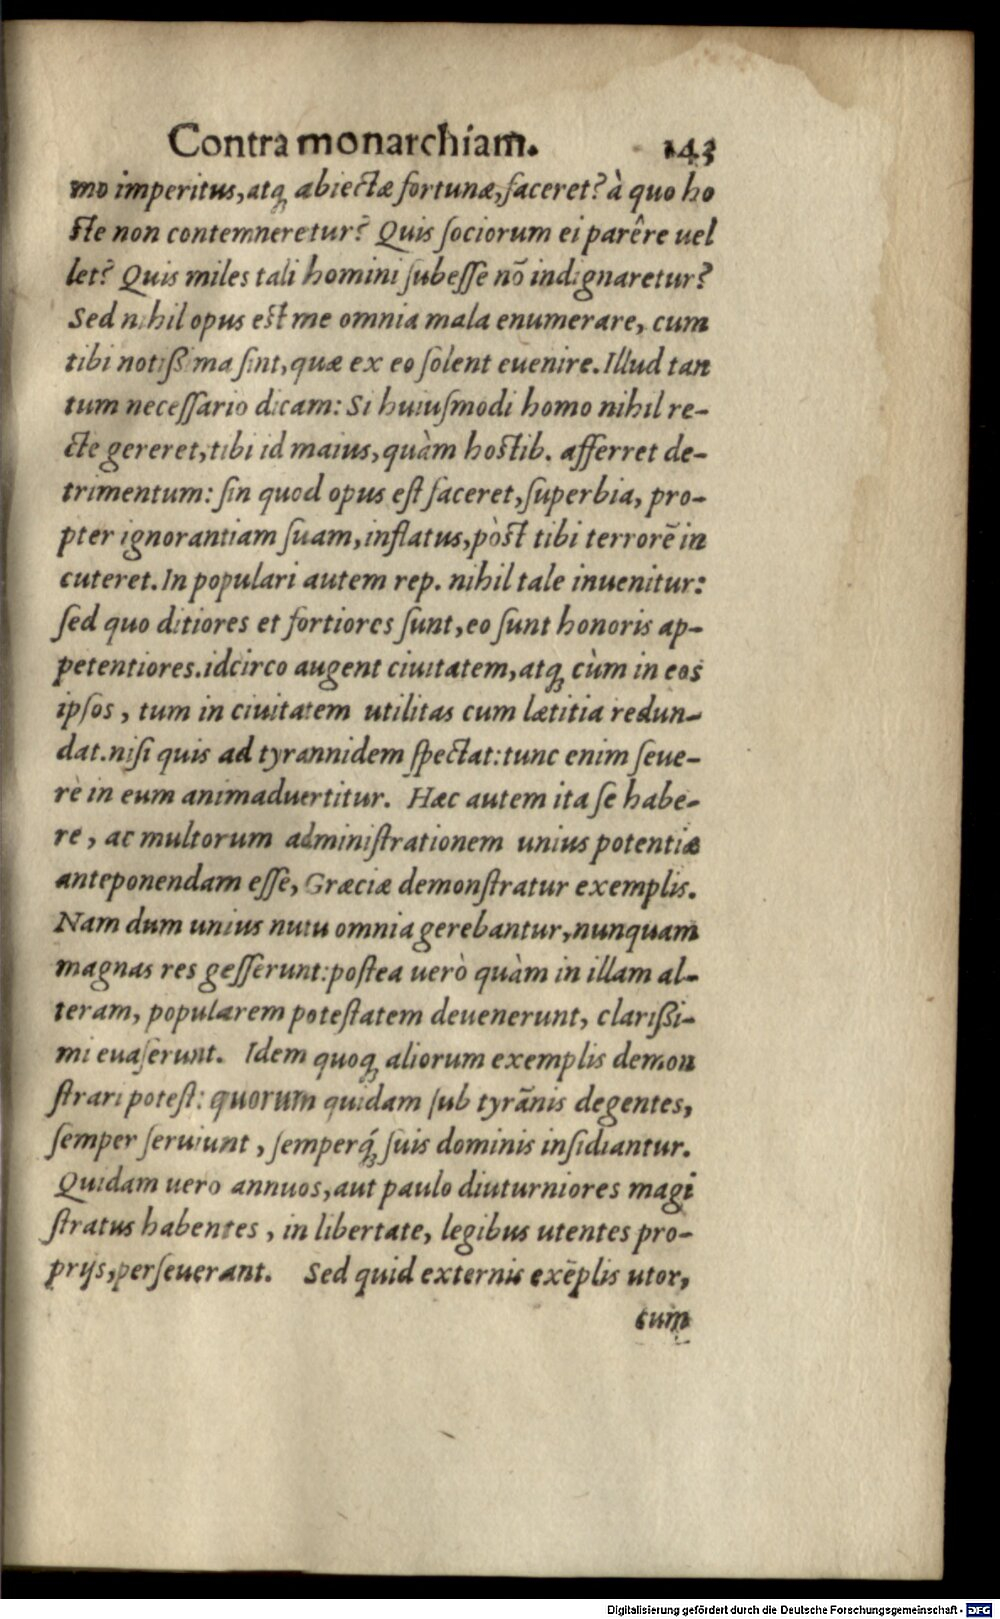 Contra monarchiam. 143
mo imperitus, atq; abiectæ fortunæ, faceret? à quo ho
ſte non contemneretur? Quis ſociorum ei parêre uel
let? Quis miles tali homini ſubeſſe nō indignaretur?
Sed nihil opus eſt me omnia mala enumerare, cum
tibi notißima ſint, quæ ex eo ſolent euenire. Illud tan
tum neceſſario dicam: Si huiuſmodi homo nihil re-
cte gereret, tibi id maius, quàm hoſtib. afferret de-
trimentum: ſin quod opus eſt faceret, ſuperbia, pro-
pter ignorantiam ſuam, inflatus, pòſt tibi terrorē in
cuteret. In populari autem rep. nihil tale inuenitur:
ſed quo ditiores et fortiores ſunt, eo ſunt honoris ap-
petentiores. idcirco augent ciuitatem, atq; cùm in eos
ipſos, tum in ciuitatem utilitas cum lætitia redun-
dat. niſi quis ad tyrannidem ſpectat: tunc enim ſeue-
rè in eum animaduertitur. Hæc autem ita ſe habe-
re, ac multorum adminiſtrationem unius potentiæ
anteponendam eſſe, Græciæ demonſtratur exemplis.
Nam dum unius nutu omnia gerebantur, nunquam
magnas res geſſerunt: poſtea uerò quàm in illam al-
teram, popularem poteſtatem deuenerunt, clarißi-
mi euaſerunt. Idem quoq; aliorum exemplis demon
ſtrari poteſt: quorum quidam ſub tyrānis degentes,
ſemper ſeruiunt, ſemperq́; ſuis dominis inſidiantur.
Quidam uero annuos, aut paulo diuturniores magi
ſtratus habentes, in libertate, legibus utentes pro-
prijs, perſeuerant. Sed quid externis exēplis utor,
cum
Digitalisierung gefördert durch die Deutsche Forschungsgemeinschaft - DFG